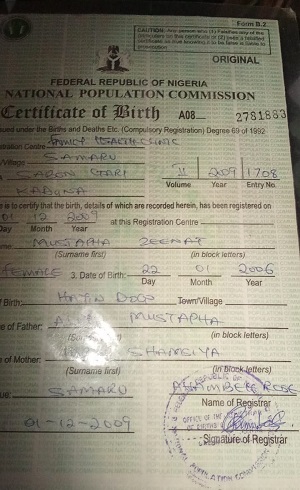 Form B.2
CAUTION: Any person who (1) Falsifies any of the
particulars on this certificate or (2) uses a falsified
certificate as true knowing it to be false is liable to
prosecution
ORIGINAL
FEDERAL REPUBLIC OF NIGERIA
NATIONAL POPULATION COMMISSION
Certificate of Birth A08 2781883
sued under the Births and Deaths Etc. (Compulsory Registration) Degree 69 of 1992
stration Centre FAMILY HEALTH CLINIC
/Village SAMARU
SABON GARI II 2009 1708
KADUNA Volume Year Entry No.
e is to certify that the birth, details of which are recorded herein, has been registered on
01 12 2009 at this Registration Centre
Day Month Year
me MUSTAPHA ZEENAT
(Surname first) (in block letters)
FEMALE 3. Date of Birth: 22 01 2006
Day Month Year
f Birth: Town/Village
e of Father: MUSTAPHA
(in block letters)
e of Mother: SHAMSIYA
(Surname first) (in block letters)
ue: SAMARU ROSE
Name of Registrar
01-12-2009
Signature of Registrar